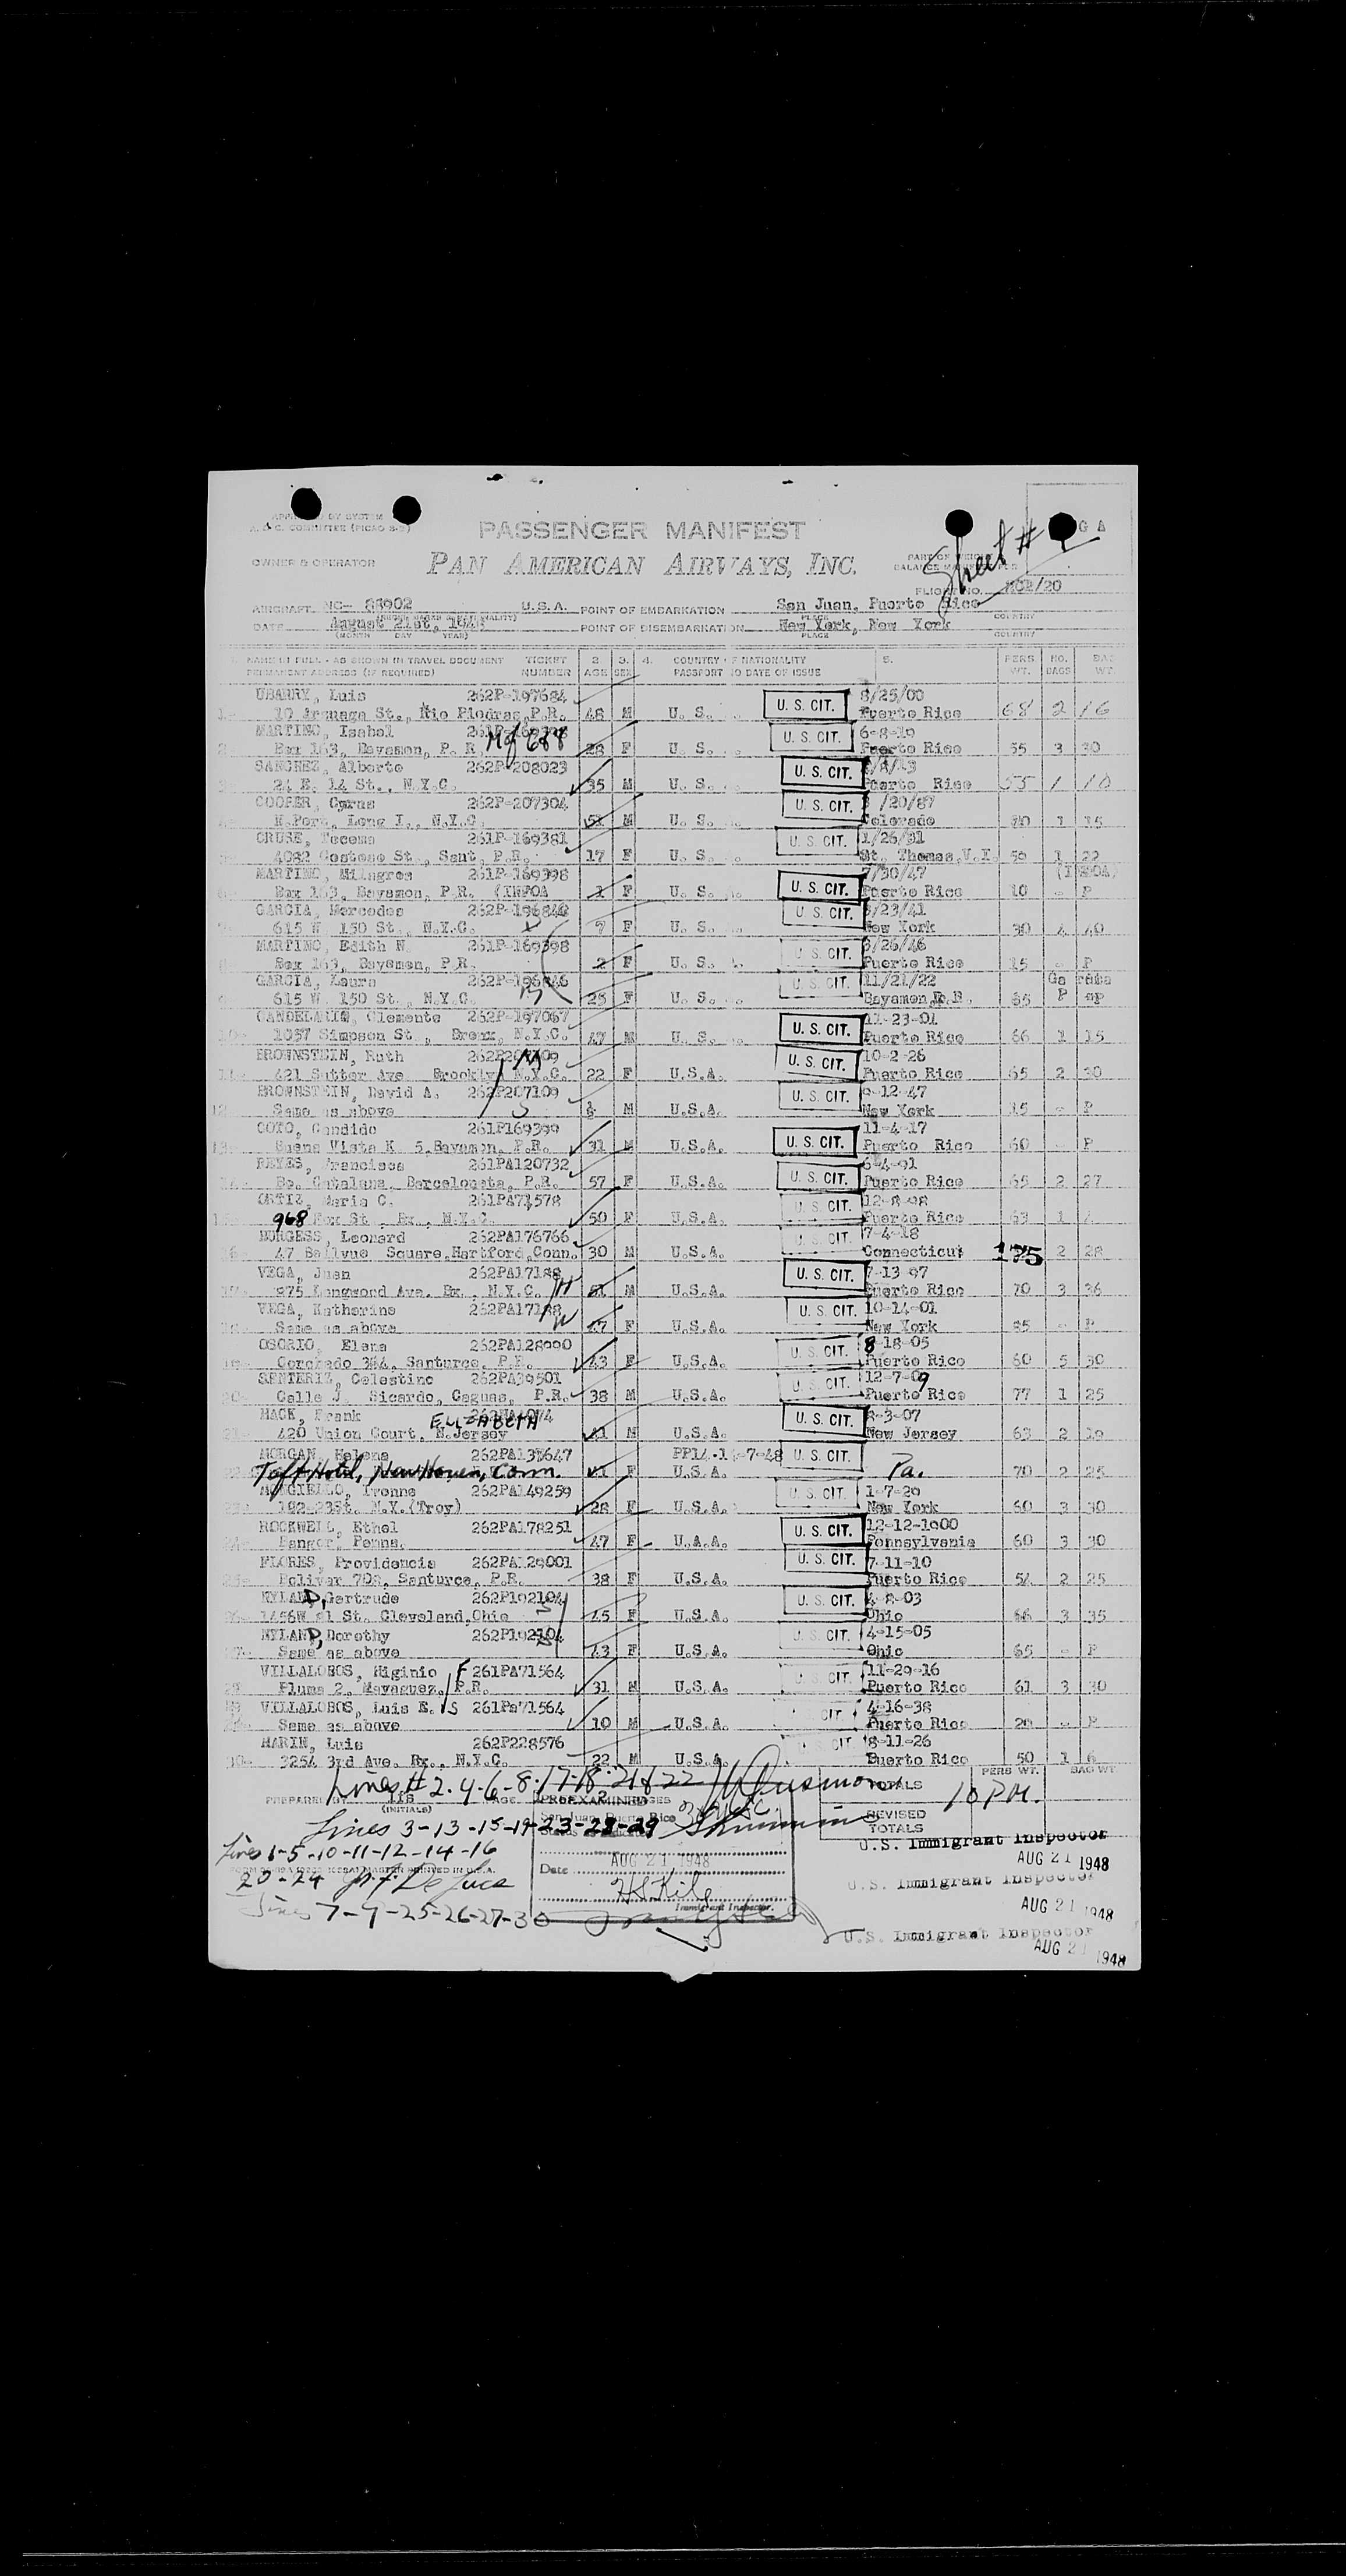 APPROVED BY SYSTEM
A. & C. COMMITTEE (PICAO 8-2)
G A
PASSENGER MANIFEST
Sheet #
OWNER & OPERATOR PAN AMERICAN AIRWAYS, INC.
FLIGHT NO. 202/20
AIRCRAFT NC- 88902 U.S.A. POINT OF EMBARKATION San Juan, Puerto Rico
PLACE COUNTRY
DATE August 21st, 1948 POINT OF DISEMBARKATION New York, New York
(MONTH DAY YEAR) PLACE COUNTRY
NAME IN FULL - AS SHOWN IN TRAVEL DOCUMENT TICKET 2. 3. 4. COUNTRY OF NATIONALITY 5. PERS NO. BAG
PERMANENT ADDRESS (IF REQUIRED) NUMBER AGE SEX PASSPORT NO DATE OF ISSUE WT. BAGS WT.
UBARRY, Luis 262P-197684 U. S. CIT. 8/25/00
1- 10 Arsuaga St., Rio Piedras, P.R. 48 M U. S. Puerto Rico 68 2 16
MARTINO, Isabel 261P-169398 U. S. CIT. 6-8-19
2- Box 163, Bayamon, P. R. M of 6&8 28 F U. S. Puerto Rico 55 3 30
SANCHEZ, Alberto 262P-208023 U. S. CIT.
3- 24 E. 14 St., N.Y.C. 35 M U. S. Puerto Rico 55 1 10
COOPER, Cyrus 262P-207304 U. S. CIT. /20/87
N.Port, Long I., N.Y.C. M U. S. Colorado 1 15
CRUSE, Tecoma 261P-169381 U. S. CIT. 1/26/31
4082 St., Sant, P.R. 17 F U. S. St. Thomas, V.I. 50 1 22
MARTINO, Milagros 261P-169398 7/30/47 (INFOA)
6- Box 163, Bayamon, P.R. (INFOA 1 F U. S. U. S. CIT. Puerto Rico 10 - P
GARCIA, Mercedes 262P-196846 U. S. CIT. 8/23/41
615 W 150 St., N.Y.C. 7 F U. S. New York 30 4 40
MARTINO, Edith N. 261P-169398 U. S. CIT. 3/26/46
8- Box 163, Bayamon, P.R. 2 F U. S. Puerto Rico 15 - P
GARCIA, Laura 262P-196846 U. S. CIT. 11/21/22
615 W. 150 St., N.Y.C. 25 F U. S. Bayamon, P.R.
CANDELARIO, Clemente 262P-197067 U. S. CIT. 11-23-01
10- 1057 Simpson St., Bronx, N.Y.C. 47 M U. S. Puerto Rico 66 1 15
BROWNSTEIN, Ruth 262P207109 U. S. CIT. 10-2-26
11- 421 Sutter Ave Brooklyn N.Y.C. 22 F U.S.A. Puerto Rico 65 2 30
BROWNSTEIN, David A. 262P207109 U. S. CIT. 9-12-47
12- Same as above M U.S.A. New York 15 - P
COTO, Candido 261P169399 11-4-17
13- Buena Vista K 5, Bayamon, P.R. 31 M U.S.A. U. S. CIT. Puerto Rico 60 - P
REYES, Francisca 261PA120732 6-4-91
Bo. Catalana, Barceloneta, P.R. 57 F U.S.A. U. S. CIT. Puerto Rico 65 2 27
ORTIZ, Maria C. 261PA71578 U. S. CIT. 12-8-98
968 Fox St., Bx., N.Y.C. 50 F U.S.A. Puerto Rico 63 1
BURGESS, Leonard 262PA176766 U. S. CIT. 7-4-18
16- 47 Bellvue Square, Hartford, Conn. 30 M U.S.A. Connecticut 175 2 28
VEGA, Juan 262PA17188 U. S. CIT. 7-13-97
875 Longwood Ave. Bx., N.Y.C. H 51 M U.S.A. Puerto Rico 70 3 36
VEGA, Katherine 262PA17188 W U. S. CIT. 10-14-01
Same as above 47 F U.S.A. New York - P
OSORIO, Elena 262PA128990 U. S. CIT. 8-18-05
Corchado 344, Santurce, P.R. 43 F U.S.A. Puerto Rico 60 5 30
SENTERIZ, Celestino 262PA39501 U. S. CIT. 12-7-09
Calle J. Sicardo, Caguas, P.R. 38 M U.S.A. Puerto Rico 77 1 25
MACK, Frank ELIZABETH U. S. CIT. 8-3-07
420 Union Court, N.Jersey 41 M U.S.A. New Jersey 63 2 19
MORGAN, Helena 262PA137647 PP14-1 -7-48 U. S. CIT.
Taft Hotel, New Haven, Conn. 41 F U.S.A. Pa. 70 2 25
Ivonne 262PA149259 U. S. CIT. 1-7-20
192-23St. N.Y.(Troy) 28 F U.S.A. New York 60 3 30
ROCKWELL, Ethel 262PA178251 U. S. CIT. 12-12-1900
Bangor, Penna. 47 F U.A.A. Pennsylvania 60 3 30
FLORES, Providencia 262PA129001 U. S. CIT. 7-11-10
25- Bolivar 703, Santurce, P.R. 38 F U.S.A. Puerto Rico 54 2 25
HYLAND, Gertrude 262P192104 U. S. CIT. 4-8-03
1456W 81 St. Cleveland, Ohio 45 F U.S.A. Ohio 66 3 35
HYLAND, Dorothy 262P192104 U. S. CIT. 4-15-05
27- Same as above 43 F U.S.A. Ohio 65 - P
VILLALOBOS, Higinio F 261PA71564 U. S. CIT. 11-29-16
Pluma 2, Mayaguez, P.R. 31 M U.S.A. Puerto Rico 61 3 30
VILLALOBOS, Luis E. S 261PA71564 CIT 4-16-38
Same as above 10 M U.S.A. Puerto Rico - P
MARIN, Luis 262P228576 U. S. CIT 8-11-26
30- 3254 3rd Ave. Bx., N.Y.C. 22 M U.S.A. Puerto Rico 50 1 6
Lines # 2-4-6-8-17-18-21&22
PERS WT. BAG WT
TOTALS
PREPARED BY (INITIALS) PREEXAMINED 10 PM.
San Juan, Puerto Rico REVISED TOTALS
Lines 3-13-15-19-23-28-29
U.S. Immigrant Inspector
Lines 1-5-10-11-12-14-16
AUG 21 1948
20-24
Date AUG 21 1948
U.S. Immigrant Inspector
AUG 21 1948
Immigrant Inspector.
Lines 7-9-25-26-27-30
U.S. Immigrant Inspector
AUG 21 1948